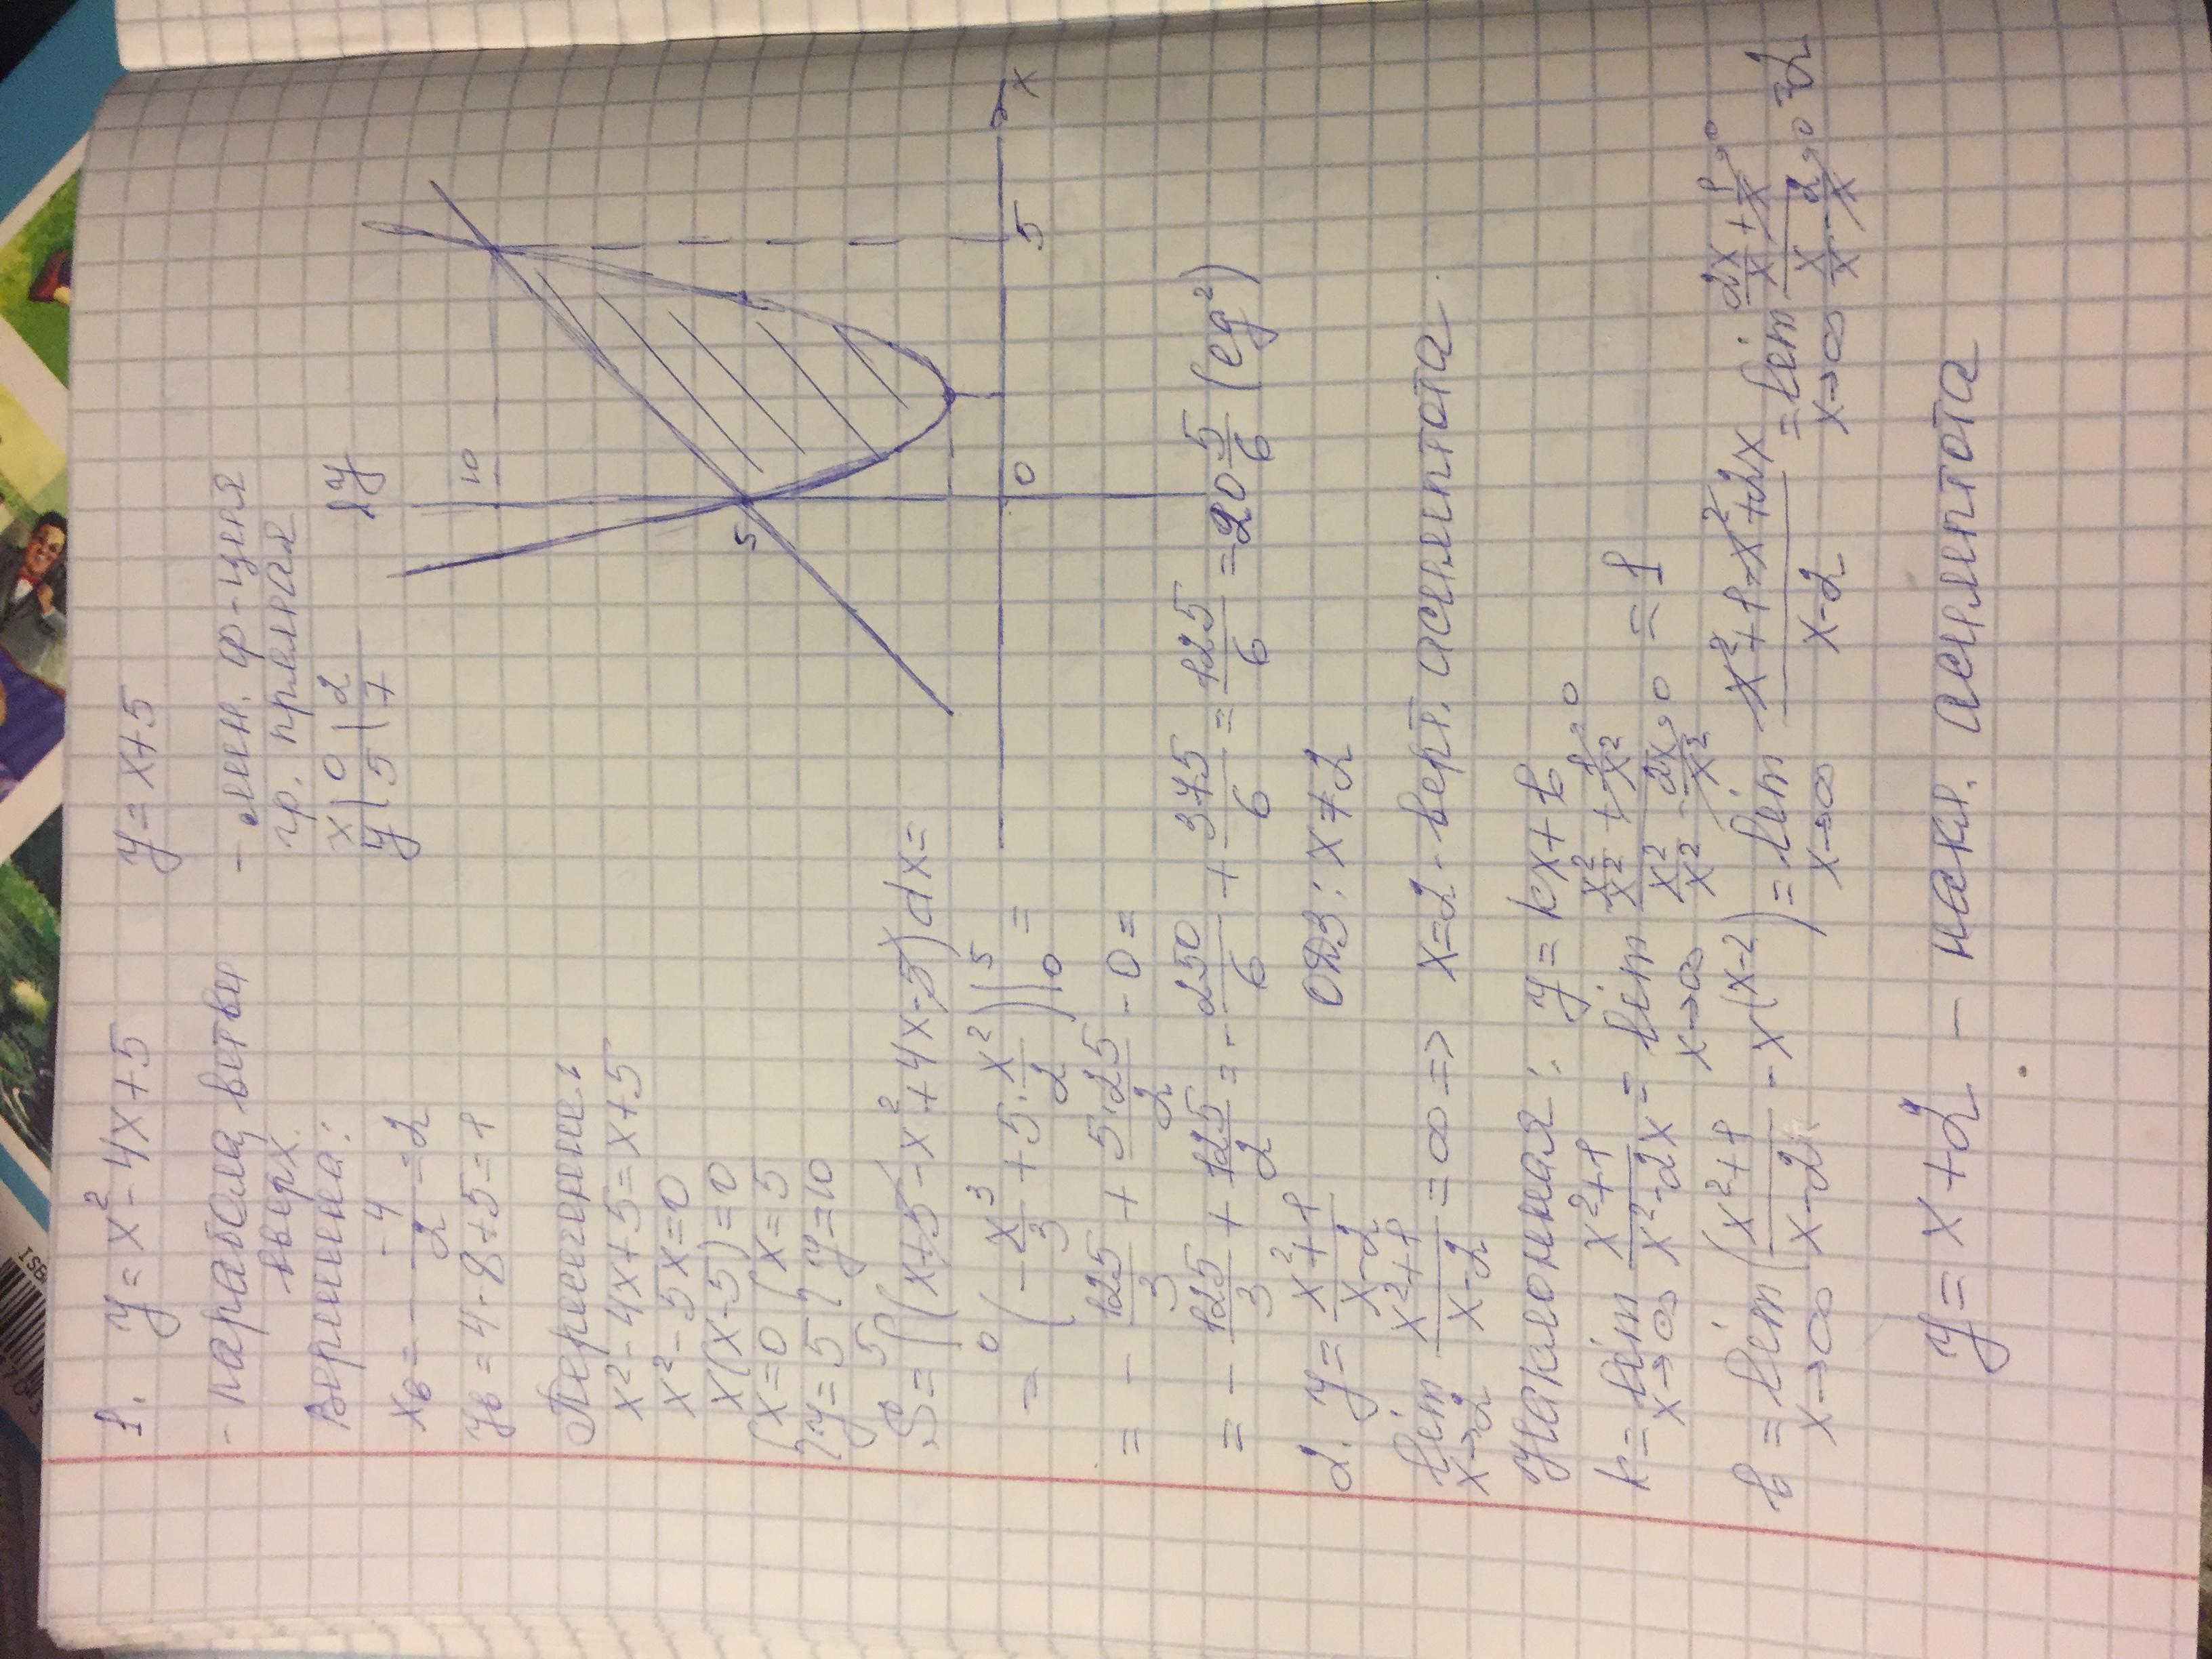 1. y = x² - 4x + 5      y = x + 5
- парабола, ветви вверх      - лин. ф-ция
гр. прямая
Вершина:      x | 0 | 2
y | 5 | 7
x_в = - -4/2 = 2
y_в = 4 - 8 + 5 = 1
y
10
5
0
5
x
Пересечение:
x² - 4x + 5 = x + 5
x² - 5x = 0
x(x - 5) = 0
{x = 0 {x = 5
{y = 5 {y = 10
S = ∫₀⁵ (x + 5 - x² + 4x - 5) dx =
= (- x³/3 + 5 · x²/2) |₀⁵ =
= - 125/3 + 5·25/2 - 0 =
= - 125/3 + 125/2 = - 250/6 + 375/6 = 125/6 = 20 5/6 (eg²)
2. y = x²+1/x-2      ОДЗ: x ≠ 2
lim x→2 x²+1/x-2 = ∞ => x = 2 - верт. асимптота.
Наклонная: y = kx + b
k = lim x→∞ x²+1/x²-2x = lim x→∞ x²/x² + 1/x² →0 / x²/x² - 2x/x² →0 = 1
b = lim x→∞ (x²+1/x-2 - x(x-2)) = lim x→∞ x²+1-x²+2x/x-2 = lim x→∞ 2x/x + 1/x →0 / x/x - 2/x →0 = 2
y = x + 2 - накл. асимптота
ISB